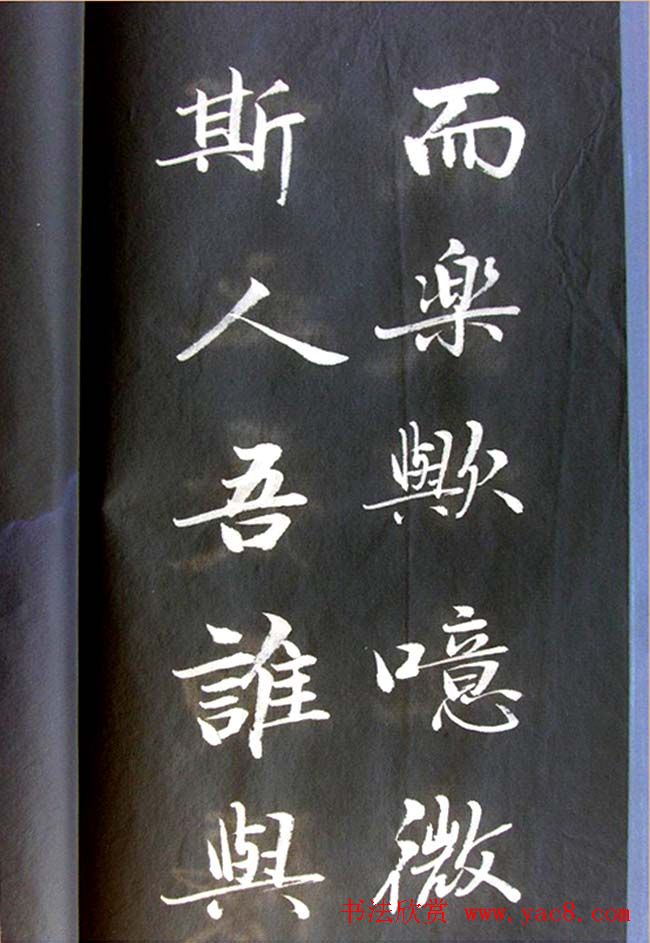 而楽歟噫微
斯人吾誰與
书法欣赏 www.yac8.com